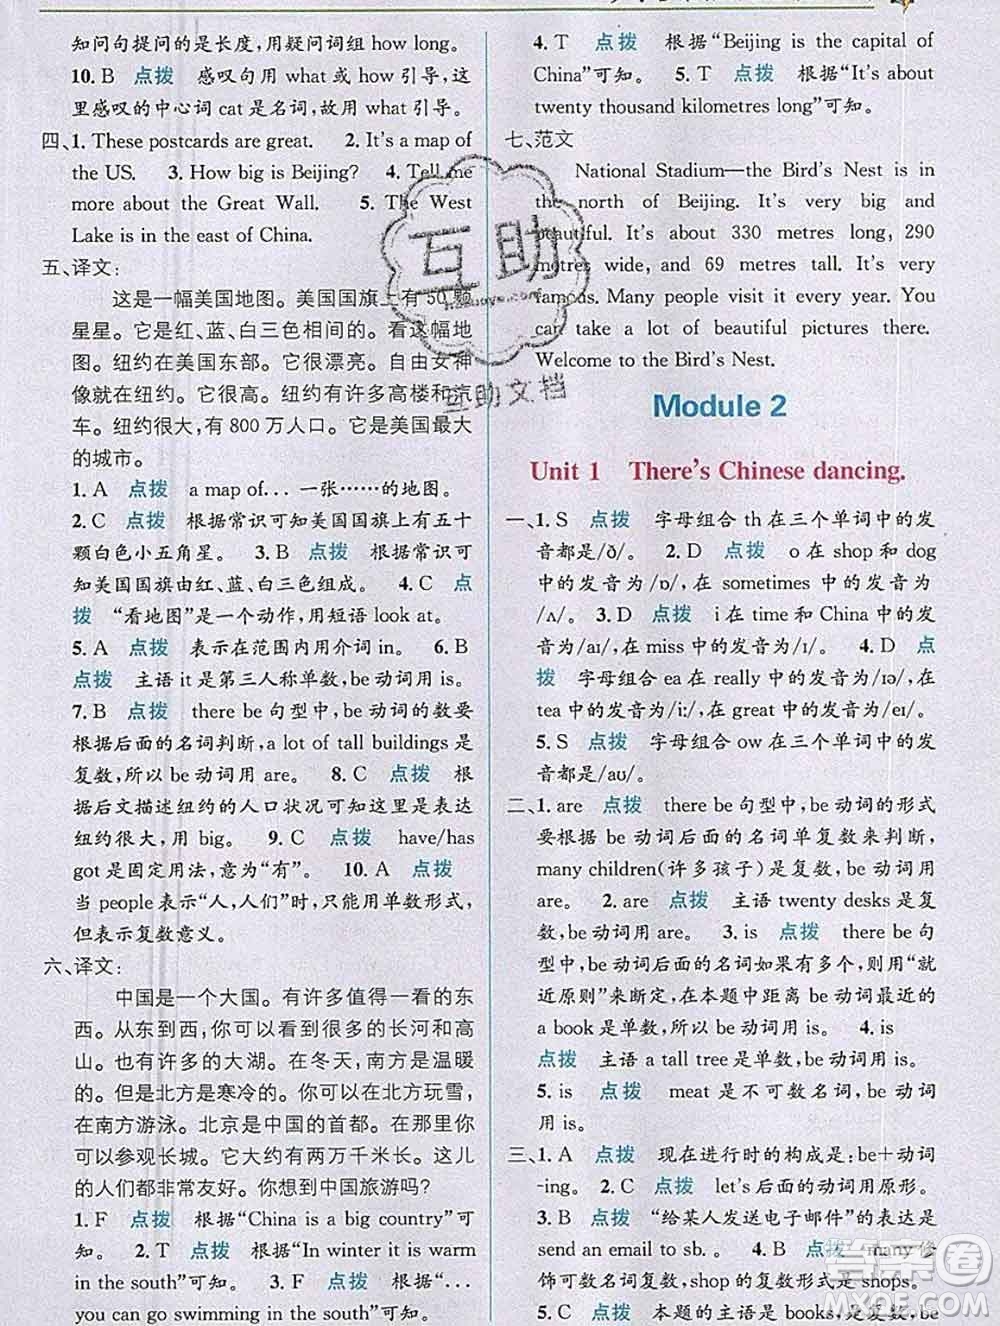 知问句提问的是长度,用疑问词组 how long.
10. B 点拨 感叹句用 what 或 how 引导,这
里感叹的中心词 cat 是名词,故用 what 引导。
四、1. These postcards are great. 2. It's a map of
the US. 3. How big is Beijing? 4. Tell me
more about the Great Wall. 5. The West
Lake is in the east of China.
五、译文:
这是一幅美国地图。美国国旗上有 50 颗
星星。它是红、蓝、白三色相间的。看这幅地
图。纽约在美国东部。它很漂亮。自由女神
像就在纽约。纽约有许多高楼和汽
车。纽约很大,有 800 万人口。美国最大
的城市。
1. A 点拨 a map of... 一张……的地图。
2. C 点拨 根据常识可知美国国旗上有五十
颗白色小五角星。 3. B 点拨 根据常识可
知美国国旗由红、蓝、白三色组成。 4. C 点
拨 “看地图”是一个动作,用短语 look at.
5. A 点拨 表示在范围内用介词 in。 6. B
点拨 主语 it 是第三人称单数,be 动词用 is。
7. B 点拨 there be 句型中,be 动词的数要
根据后面的名词判断,a lot of tall buildings 是
复数,所以 be 动词用 are。 8. C 点拨 根
据后文描述纽约的人口状况可知这里是表达
纽约很大,用 big。 9. C 点拨 have/has
got 是固定用法,意为“有”。 10. A 点拨
当 people 表示“人,人们”时,只能用单数形式,
但表示复数意义。
六、译文:
中国是一个大国。有许多值得一看的东
西。从东到西,你可以看到很多的长河和高
山。也有许多的大湖。在冬天,南方是温暖
的。但是北方是寒冷的。你可以在北方玩雪,
在南方游泳。北京是中国的首都。在那里,你
可以参观长城。它大约有两万千米长。这儿
的人们都非常友好。你想到中国旅游吗?
1. F 点拨 根据“China is a big country”可
知。 2. T 点拨 根据“In winter it is warm
in the south”可知。 3. F 点拨 根据“...
you can go swimming in the south”可知。
4. T 点拨 根据“Beijing is the capital of
China”可知。 5. T 点拨 根据“It's about
twenty thousand kilometres long”可知。
七、范文
National Stadium—the Bird's Nest is in
the north of Beijing. It's very big and
beautiful. It's about 330 metres long, 290
metres wide, and 69 metres tall. It's very
famous. Many people visit it every year. You
can take a lot of beautiful pictures there.
Welcome to the Bird's Nest.
Module 2
Unit 1 There's Chinese dancing.
一、1. S 点拨 字母组合 th 在三个单词中的发
音都是/ð/。 2. D 点拨 o 在 shop 和 dog
中的发音为/ɒ/,在 sometimes 中的发音为
/ʌ/。 3. D 点拨 i 在 time 和 China 中的发
音为/aɪ/,在 miss 中的发音为/ɪ/。 4. D 点
拨 字母组合 ea 在 really 中的发音为/ɪə/,在
tea 中的发音为/i:/,在 great 中的发音为/eɪ/。
5. S 点拨 字母组合 ow 在三个单词中的发
音都是/aʊ/。
二、1. are 点拨 there be 句型中,be 动词的形式
要根据 be 动词后面的名词单复数来判断,
many children(许多孩子)是复数,be 动词用
are。 2. are 点拨 主语 twenty desks 是复
数,be 动词用 are。 3. is 点拨 there be 句
型中,be 动词后面的名词如果有多个,则用“就
近原则”来断定,在本题中距离 be 动词最近的
a book 是单数,所以 be 动词用 is。 4. is
点拨 主语 a tall tree 是单数,be 动词用 is。
5. is 点拨 meat 是不可数名词,be 动词
用 is。
三、1. A 点拨 现在进行时的构成是:be+动词
-ing。 2. C 点拨 let's 后面的动词用原形。
3. B 点拨 “给某人发送电子邮件”的表达是
send an email to sb. 4. B 点拨 many 修
饰可数名词复数,shop 的复数形式是 shops。
5. C 点拨 本题的主语是 books,是复数,be
互助
互助文档
答案圈
MXQE.COM